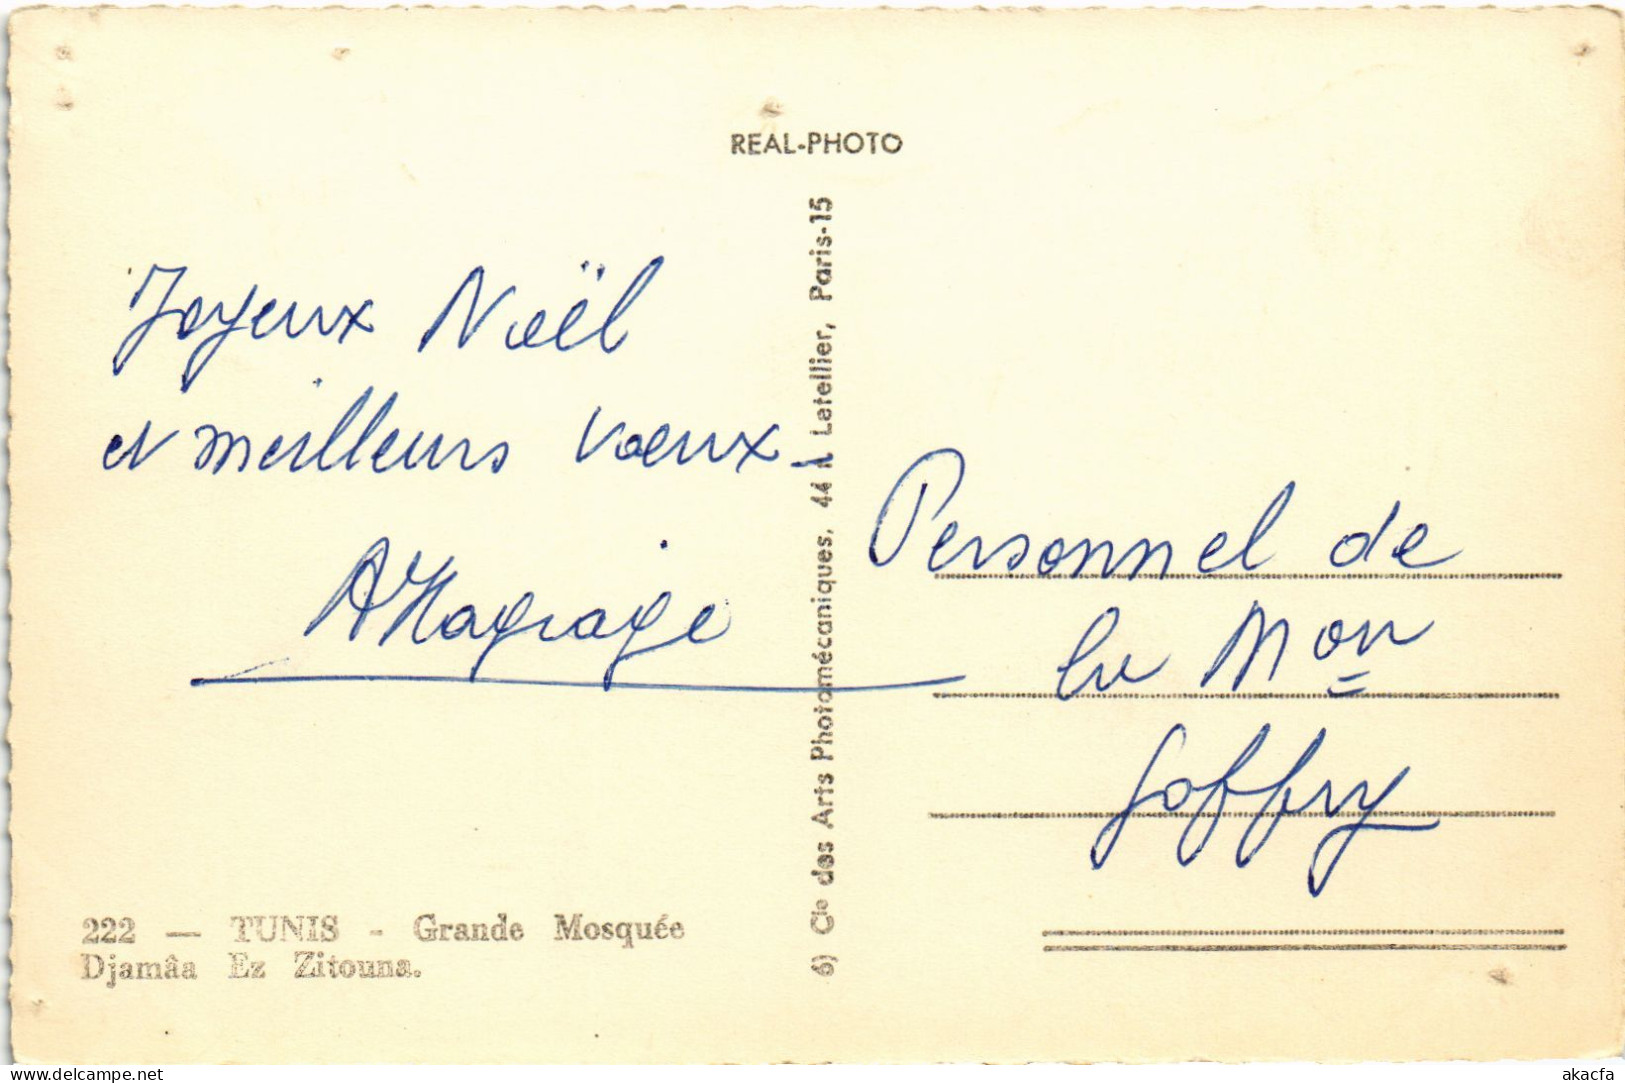 REAL-PHOTO
Joyeux Noël
et meilleurs voeux
222 — TUNIS - Grande Mosquée
Djamâa Ez Zitouna.
6) Cie des Arts Photomécaniques, 44 R. Letellier, Paris-15
Personnel de
la Mon
Goffry
www.delcampe.net
akacfa